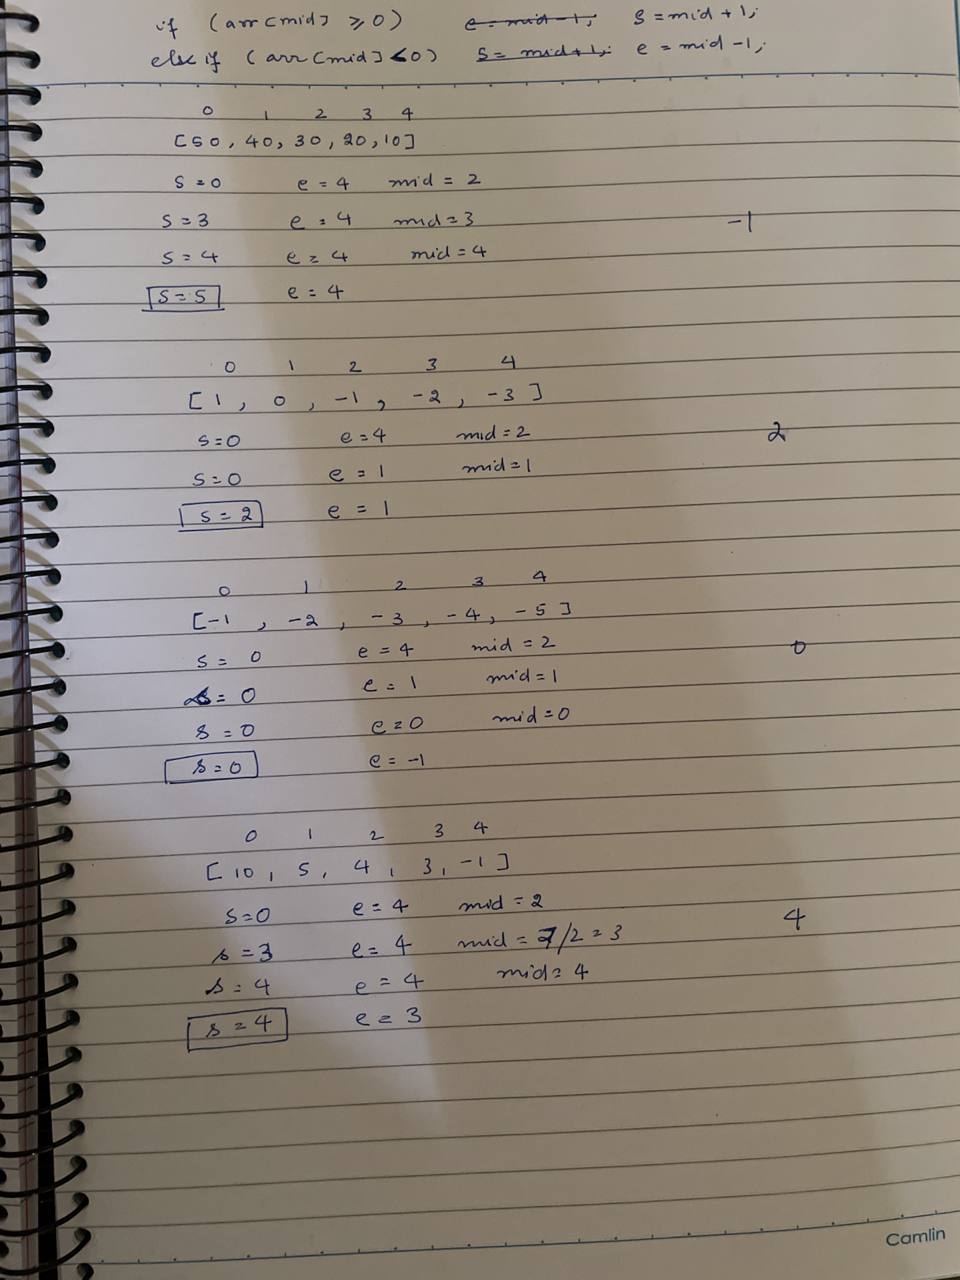 if (arr[mid] ≥ 0) e = mid - 1; s = mid + 1;
else if (arr[mid] < 0) s = mid + 1; e = mid - 1;
0 1 2 3 4
[50, 40, 30, 20, 10]
s = 0 e = 4 mid = 2
s = 3 e = 4 mid = 3 -1
s = 4 e = 4 mid = 4
s = 5 e = 4
0 1 2 3 4
[1, 0, -1, -2, -3]
s = 0 e = 4 mid = 2 2
s = 0 e = 1 mid = 1
s = 2 e = 1
0 1 2 3 4
[-1, -2, -3, -4, -5]
s = 0 e = 4 mid = 2 0
s = 0 e = 1 mid = 1
s = 0 e = 0 mid = 0
s = 0 e = -1
0 1 2 3 4
[10, 5, 4, 3, -1]
s = 0 e = 4 mid = 2
s = 3 e = 4 mid = 7/2 = 3 4
s = 4 e = 4 mid = 4
s = 4 e = 3
Camlin